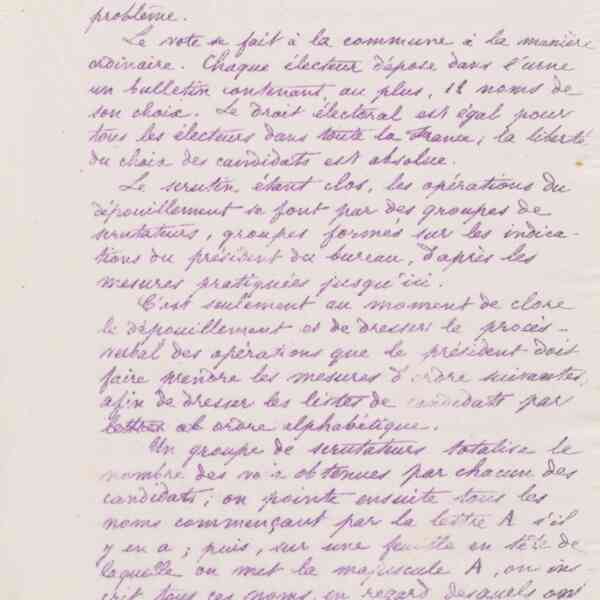 problème.
Le vote se fait à la commune à la manière
ordinaire. Chaque électeur dépose dans l'urne
un bulletin contenant, au plus, 12 noms de
son choix. Le droit électoral est égal pour
tous les électeurs dans toute la France; la liberté
du choix des candidats est absolue.
Le scrutin étant clos, les opérations du
dépouillement se font par des groupes de
scrutateurs, groupes formés sur les indica-
tions du président du bureau, d'après les
mesures pratiquées jusqu'ici.
C'est seulement au moment de clore
le dépouillement et de dresser le procès-
verbal des opérations que le président doit
faire prendre les mesures d'ordre suivantes,
afin de dresser les listes de candidats par
ordre alphabétique.
Un groupe de scrutateurs totalise le
nombre des voix obtenues par chacun des
candidats; on pointe ensuite tous les
noms commençant par la lettre A s'il
y en a; puis, sur une feuille en tête de
laquelle on met la majuscule A, on ins-
crit tous ces noms en regard desquels on